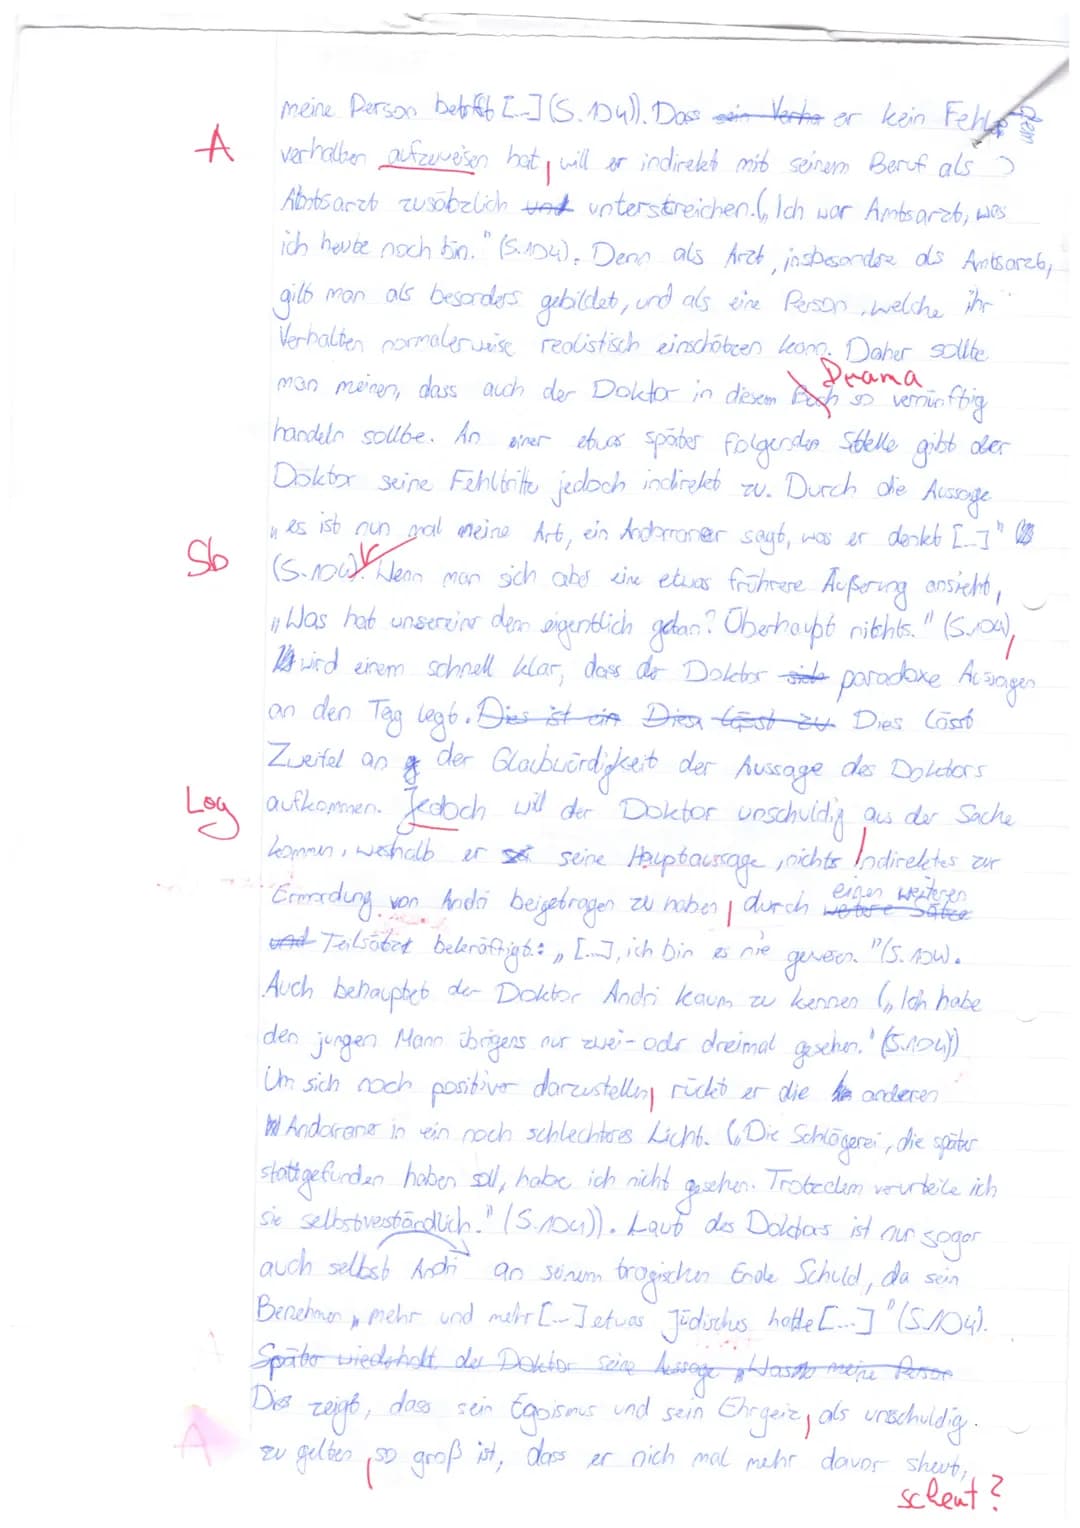 meine Person betrifft [...] (S. 104)). Dass sein Verha er kein Fehl
den
A
verhalten aufzuweisen hat, will er indirekt mit seinem Beruf als
Abmtsarzt zusätzlich und unterstreichen. („Ich war Amtsarzt, was
ich heute noch bin." (S.104). Denn als Arzt, insbesondere als Amtsarzt,
gilt man als besonders gebildet, und als eine Person, welche ihr
Verhalten normalerweise realistisch einschätzen kann. Daher sollte
Drama
man meinen, dass auch der Doktor in diesem Buch so vernünftig
handeln sollte. An einer etwas später folgenden Stelle gibt der
Doktor seine Fehltritte jedoch indirekt zu. Durch die Aussage
„es ist nun mal meine Art, ein Andorraner sagt, was er denkt [...]"
Sb
(S.104). Wenn man sich aber eine etwas frührere Äußerung ansieht,
„Was hat unsereiner denn eigentlich getan? Überhaupt nichts." (S.104),
wird einem schnell klar, dass der Doktor sich paradoxe Aussagen
an den Tag legt. Dies ist ein Diesx lässt zu Dies lässt
Zweifel an g der Glaubwürdigkeit der Aussage des Doktors
Log
aufkommen. Jedoch will der Doktor unschuldig aus der Sache
kommen, weshalb er sei seine Hauptaussage, nichts Indirektes zur
Ermordung von Andri beigetragen zu haben, durch weitere Sätze
einen weiteren
und Teilsatzt bekräftigt: „[...], ich bin es nie gewesen."(S. 104).
Auch behauptet der Doktor Andri kaum zu kennen („Ich habe
den jungen Mann übrigens nur zwei- oder dreimal gesehen." (S.104))
Um sich noch positiver darzustellen, rückt er die anderen
Andorraner in ein noch schlechteres Licht. („Die Schlägerei, die später
stattgefunden haben soll, habe ich nicht gesehen. Trotzdem verurteile ich
sie selbstverständlich." (S.104)). Laut des Doktors ist nun sogar
auch selbst Andri an seinem tragischen Ende Schuld, da sein
Benehmen „mehr und mehr [...] etwas Jüdisches hatte [...]" (S.104).
Später wiederholt der Doktor seine Aussage „Was meine Person
Dies zeigt, dass sein Egoismus und sein Ehrgeiz, als unschuldig
A
zu gelten, so groß ist, dass er nich mal mehr davor sheut,
scheut?